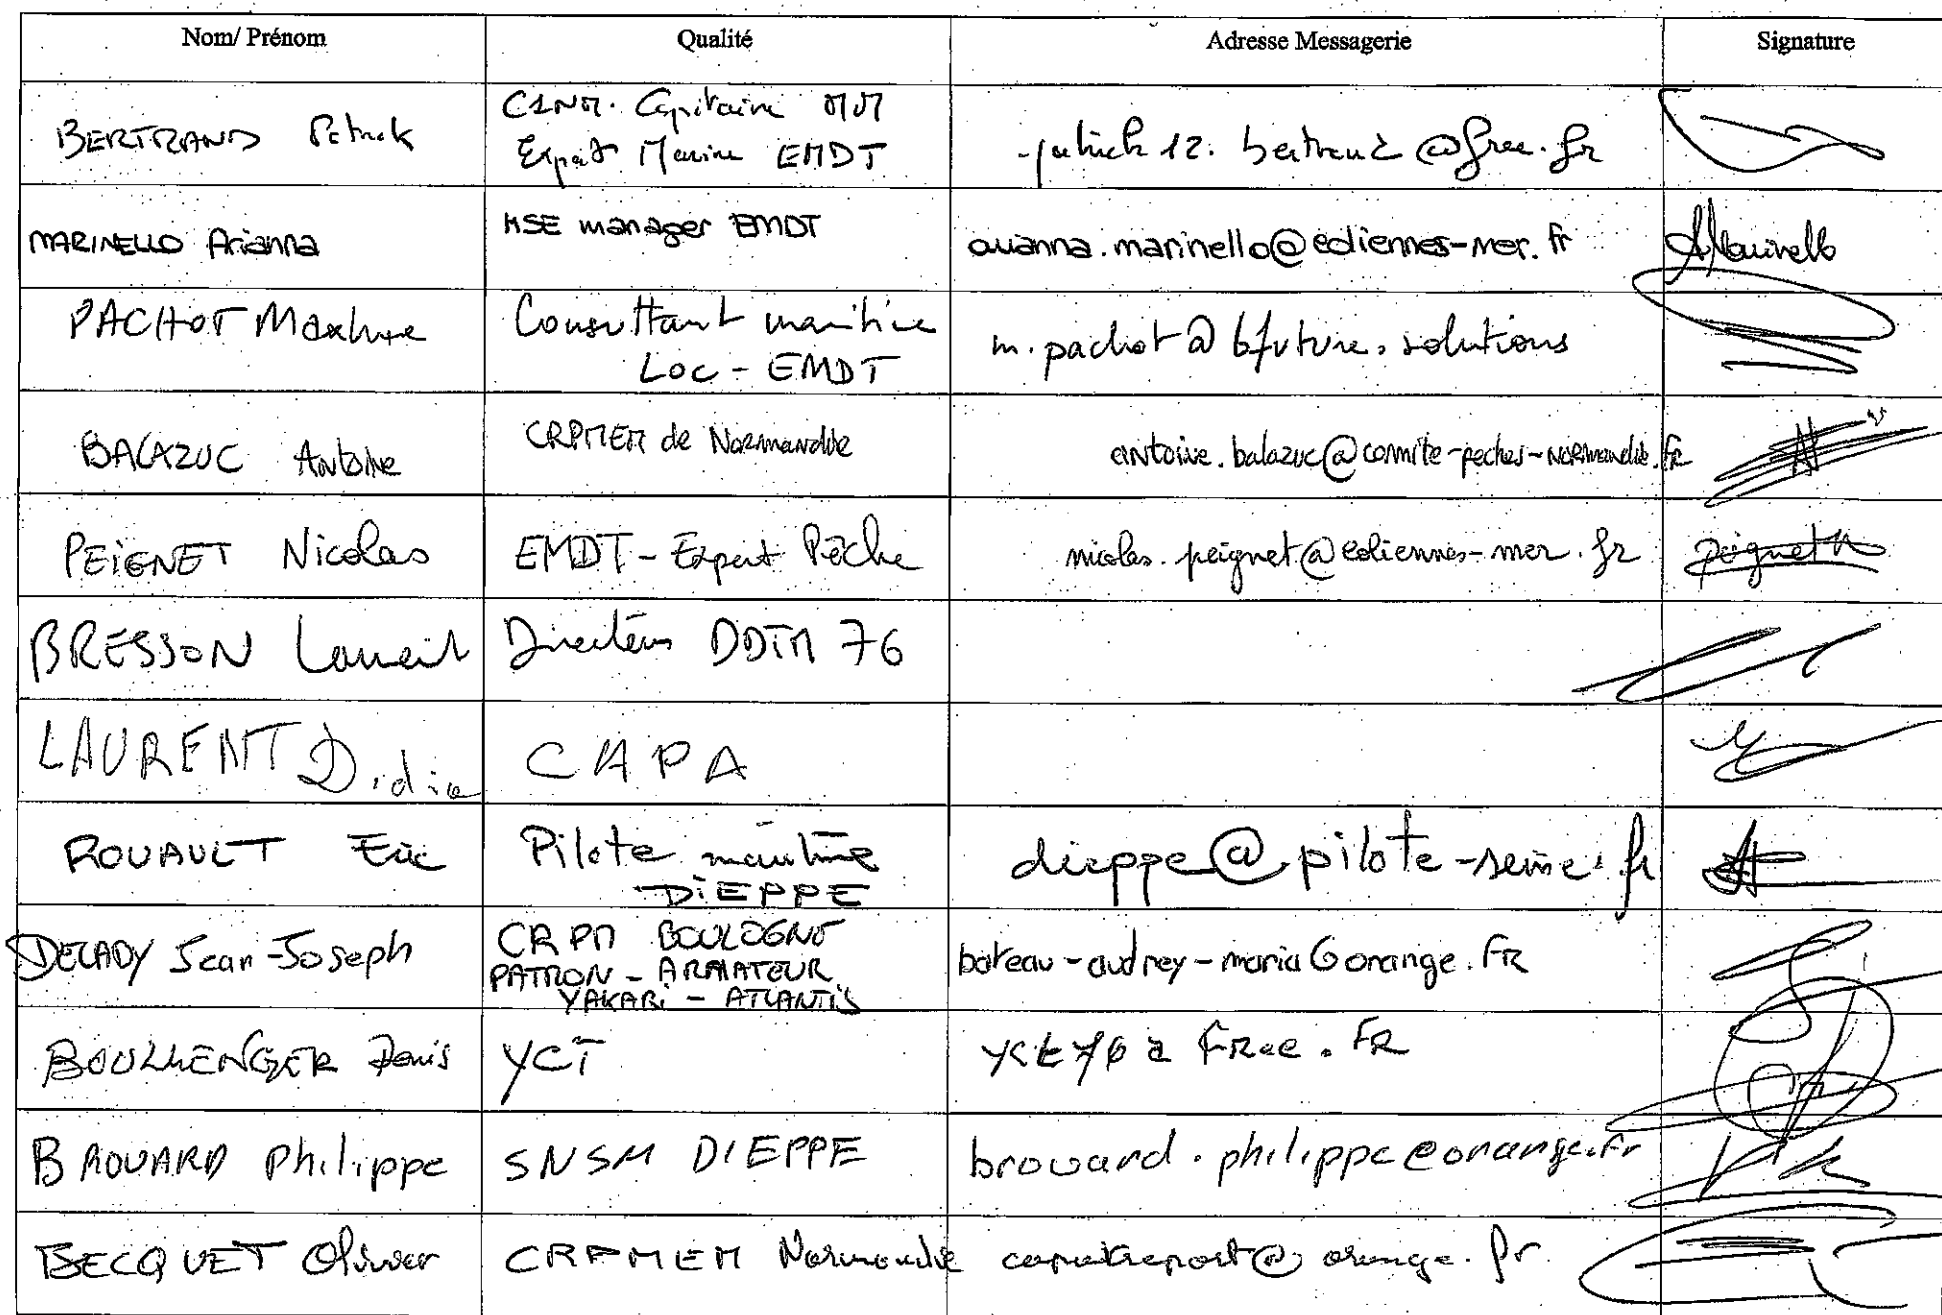 Nom/ Prénom Qualité Adresse Messagerie Signature
BERTRAND Patrick C1NM. Capitaine MM patrick12.bertrand@free.fr
Expert Marine EMDT
MARINELLO Arianna HSE manager EMDT arianna.marinello@eoliennes-mer.fr AMarinello
PACHOT Maxime Consultant maritime m.pachot@bfuture.solutions
LOC - EMDT
BALAZUC Antoine CRPMEM de Normandie antoine.balazuc@comite-peches-normandie.fr
PEIGNET Nicolas EMDT - Expert Pêche nicolas.peignet@eoliennes-mer.fr peignet n
BRESSON Laurent Directeur DDTM 76
LAURENT Didier CHPA
ROUAULT Eric Pilote maritime dieppe@pilote-seine.fr
DIEPPE
DELADY Jean-Joseph CRPM BOULOGNE bateau-audrey-maria@orange.FR
PATRON - ARMATEUR
YAKARI - ATLANTIS
BOULLENGER Denis YCT Free.FR
BROUARD Philippe SNSM DIEPPE brouard.philippe@orange.fr
BECQUET Olivier CRPMEM Normandie @orange.fr